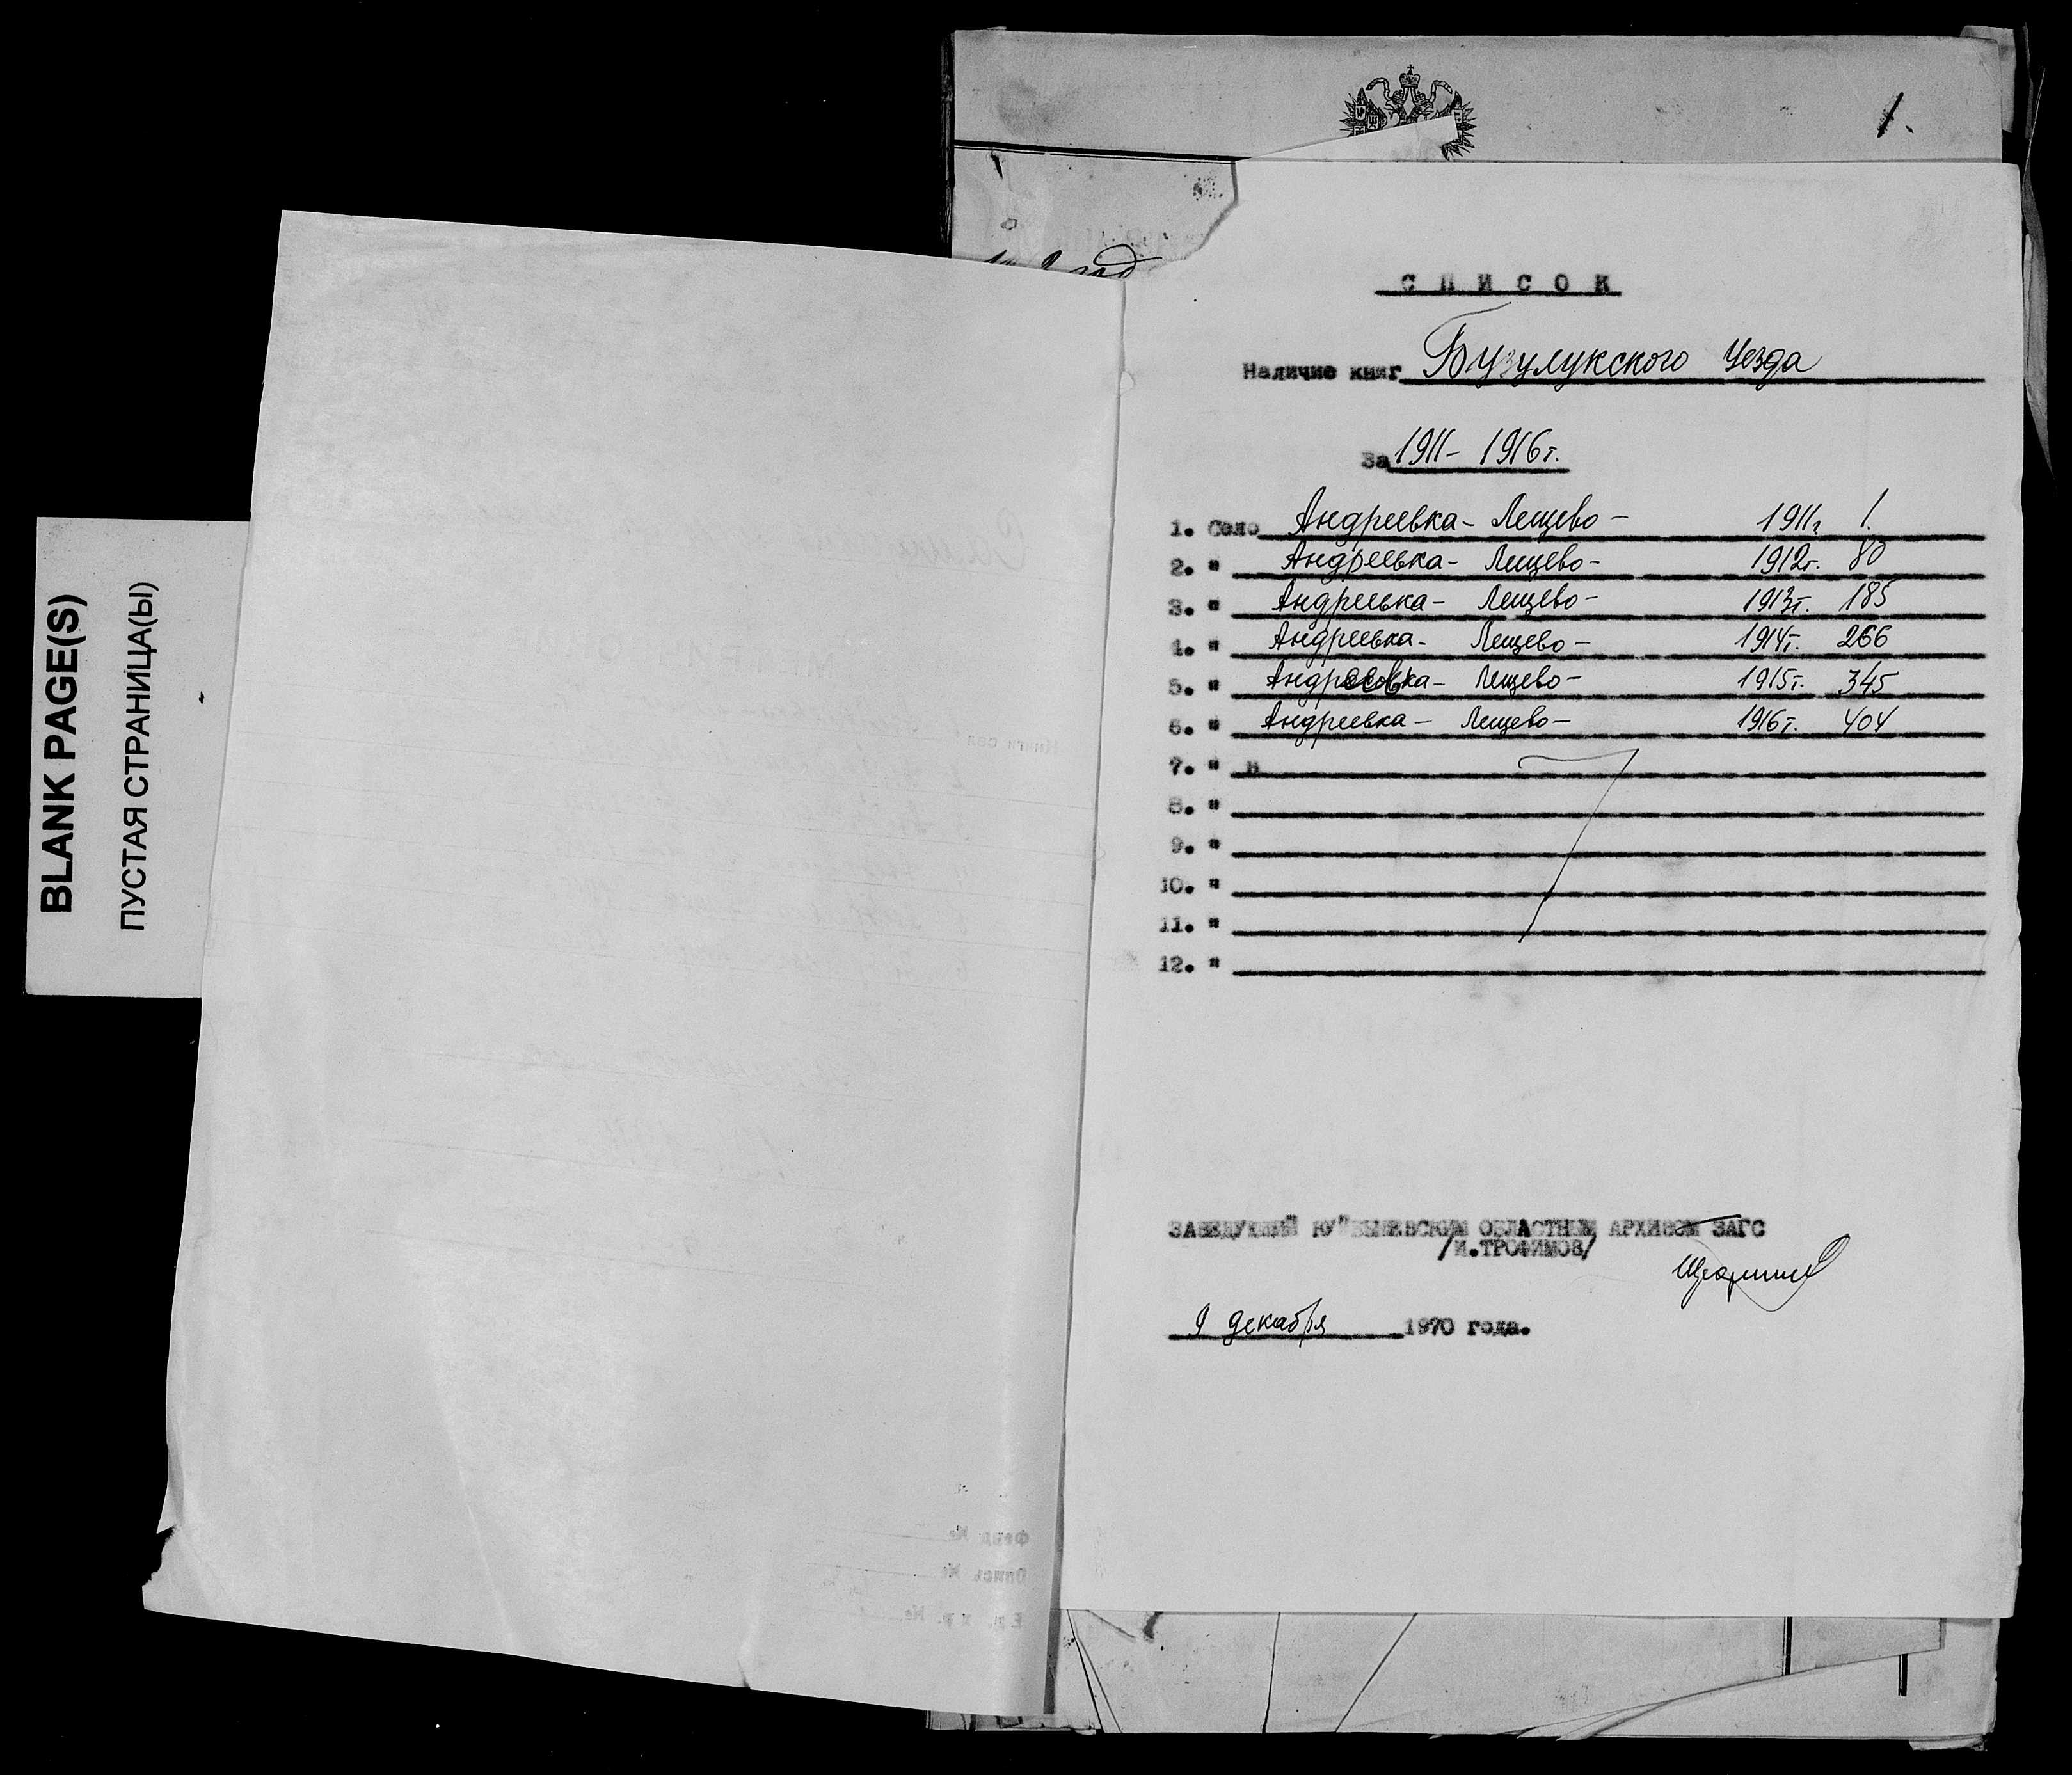 BLANK PAGE(S)
ПУСТАЯ СТРАНИЦА(Ы)
1.
год
СПИСОК
Наличие книг Бузулукского Уезда
За 1911 - 1916 г.
1. Село Андреевка - Лещево - 1911 г. 1.
2. " Андреевка - Лещево - 1912 г. 80
3. " Андреевка - Лещево - 1913 г. 185
4. " Андреевка - Лещево - 1914 г. 266
5. " Андреевка - Лещево - 1915 г. 345
6. " Андреевка - Лещево - 1916 г. 404
7. " н
8. "
9. "
10. "
11. "
12. "
ЗАВЕДУЮЩИЙ КУЙБЫШЕВСКИМ ОБЛАСТНЫМ АРХИВОМ ЗАГС
/И.ТРОФИМОВ/
9 декабря 1970 года.
Фонд №
Опись №
Ед. хр. №